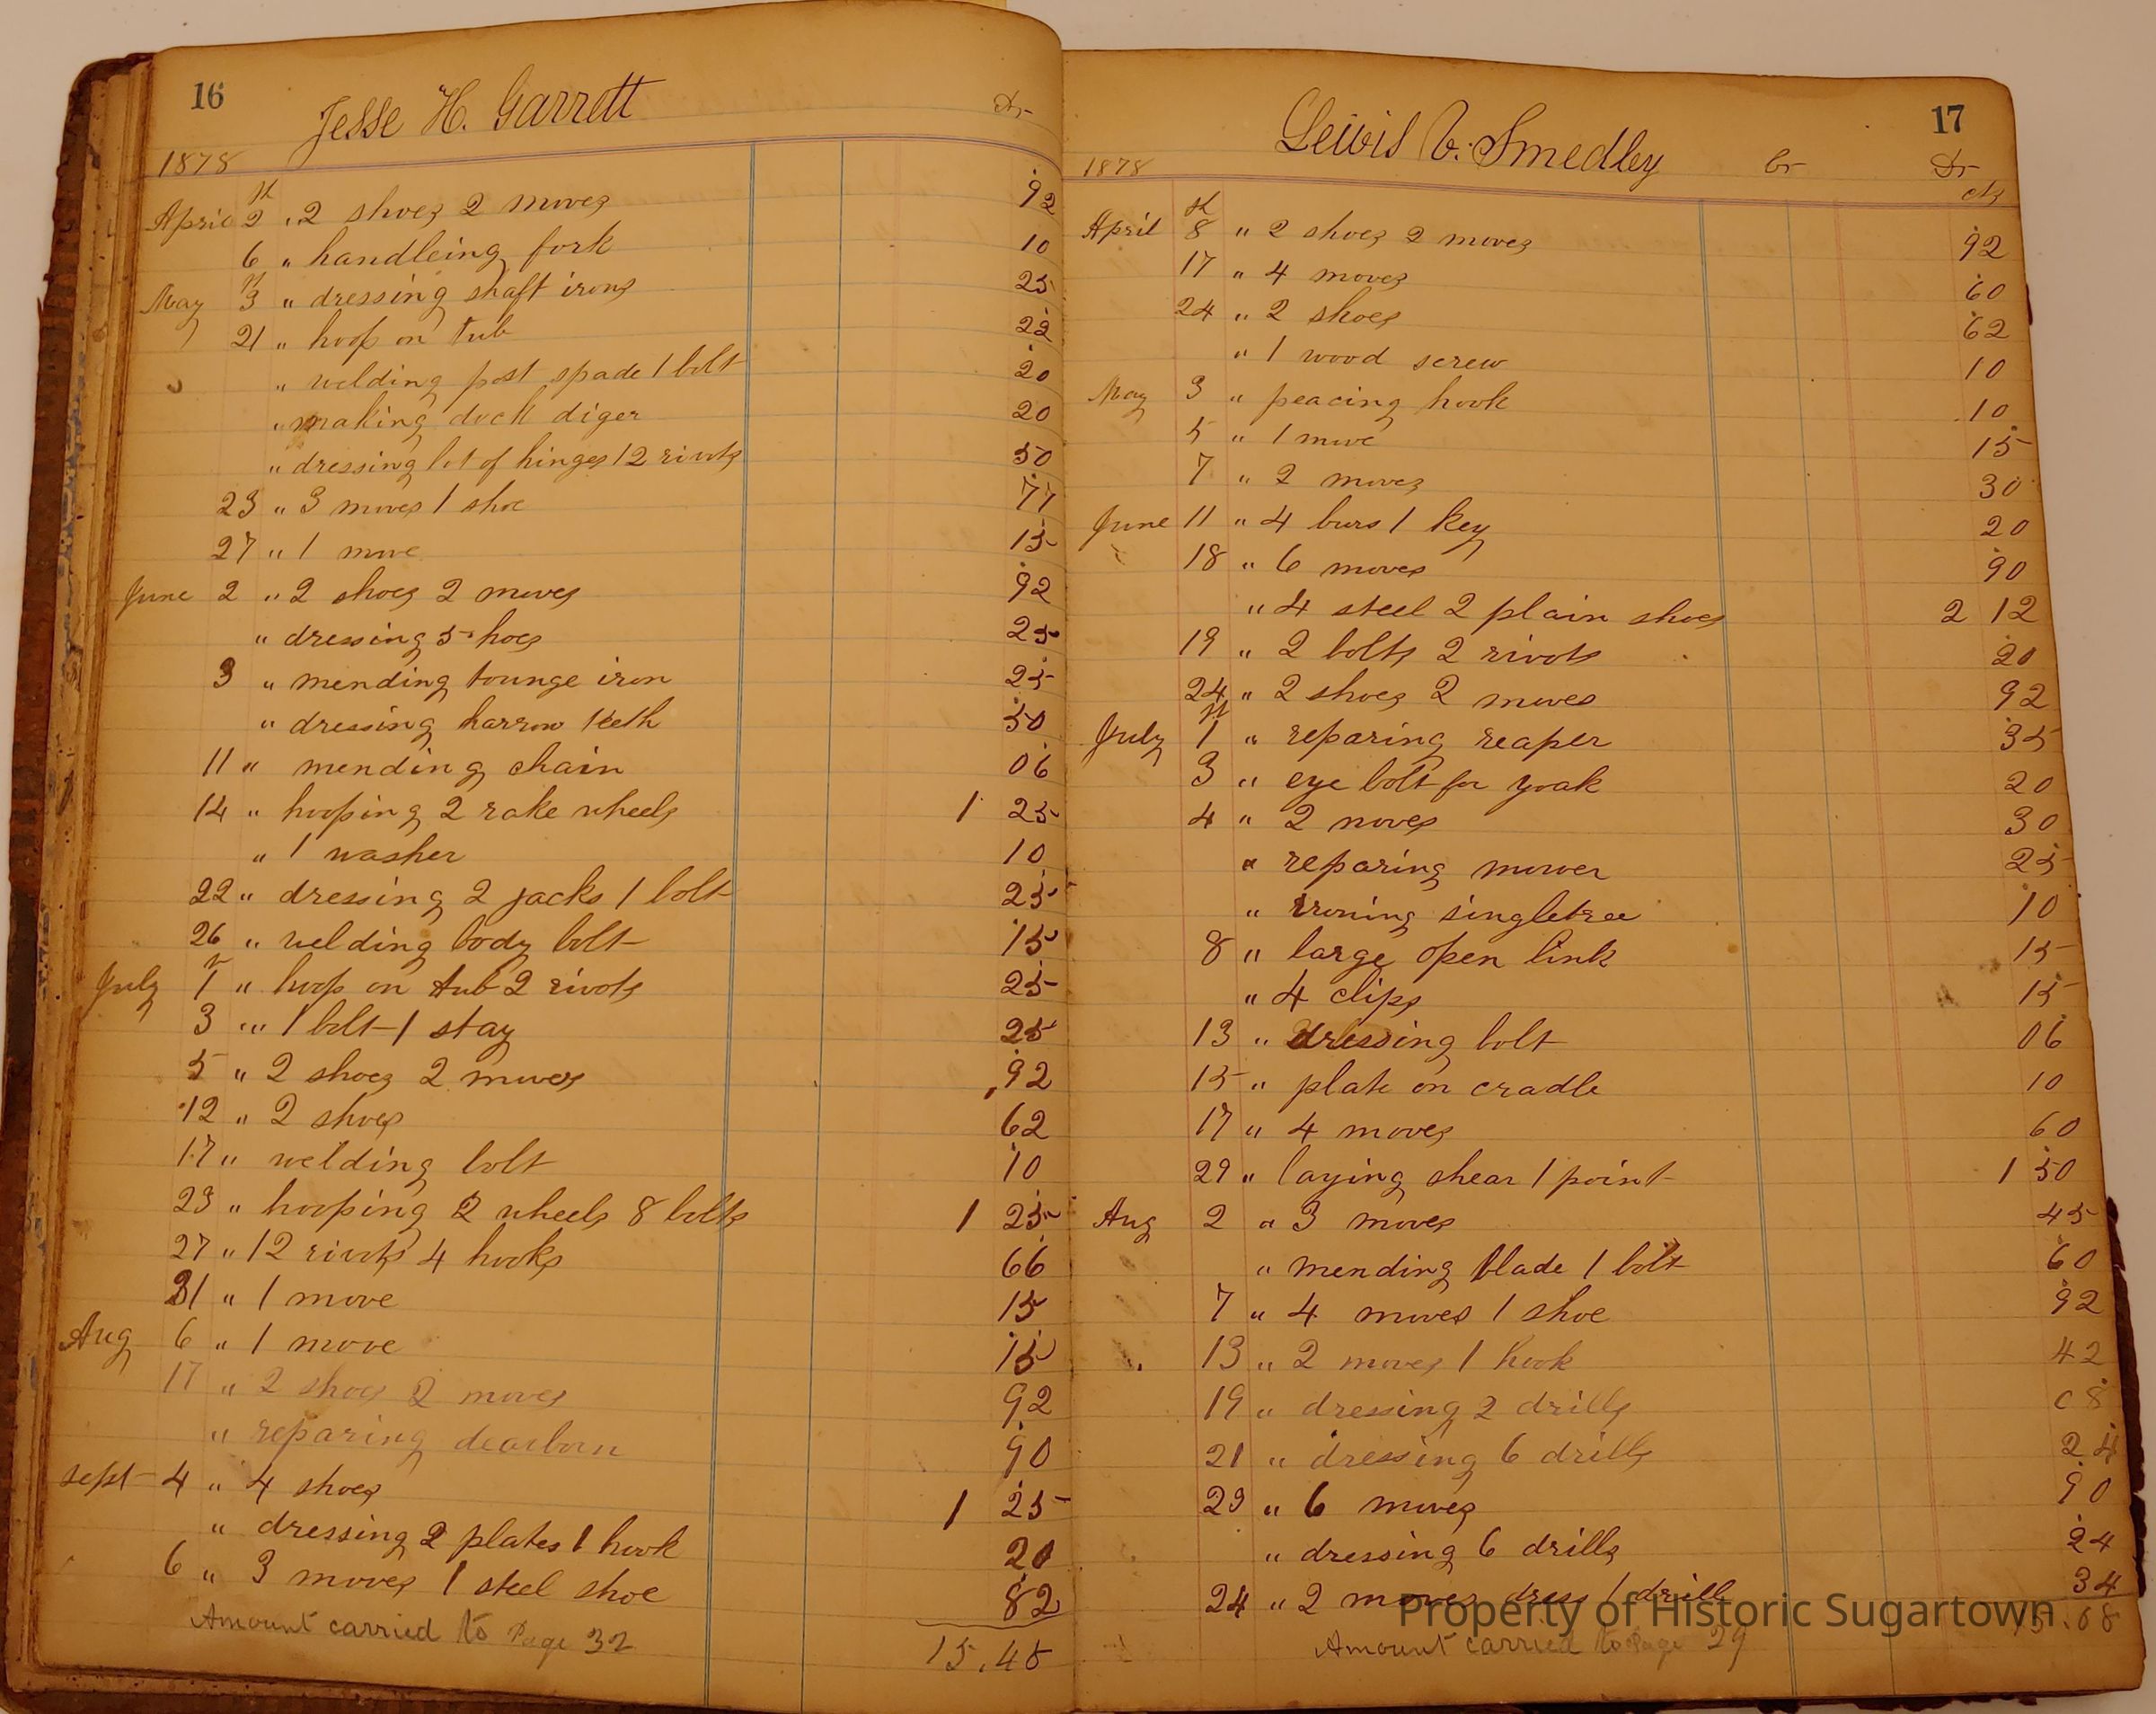 16
Jesse H. Garrett
Dr
1878
April 2 " 2 shoes 2 moves 92
6 " handleing fork 10
May 3 " dressing shaft irons 25
21 " hoop on tub 22
" welding post spade 1 bolt 20
" making dock diger 20
" dressing lot of hinges 12 rivots 50
23 " 3 moves 1 shoe 77
27 " 1 move 15
June 2 " 2 shoes 2 moves 92
" dressing 5 hoes 25
3 " mending tounge iron 25
" dressing harrow teeth 50
11 " mending chain 06
14 " hooping 2 rake wheels 1 25
" 1 washer 10
22 " dressing 2 jacks 1 bolt 25
26 " welding body bolt 15
July 1 " hoop on tub 2 rivots 25
3 " 1 bolt 1 stay 25
5 " 2 shoes 2 moves 92
12 " 2 shoes 62
17 " welding bolt 10
23 " hooping 2 wheels 8 bolts 1 25
27 " 12 rivots 4 hooks 66
31 " 1 move 15
Aug 6 " 1 move 15
17 " 2 shoes 2 moves 92
" reparing dearborn 90
Sept 4 " 4 shoes 1 25
" dressing 2 plates 1 hook 20
6 " 3 moves 1 steel shoe 82
Amount carried to Page 32 15.45
17
Lewis V. Smedley
Cr Dr
1878 cts
April 8 " 2 shoes 2 moves 92
17 " 4 moves 60
24 " 2 shoes 62
" 1 wood screw 10
May 3 " peacing hook 10
5 " 1 move 15
7 " 2 moves 30
June 11 " 4 burs 1 key 20
18 " 6 moves 90
" 4 steel 2 plain shoes 2 12
19 " 2 bolts 2 rivots 20
24 " 2 shoes 2 moves 92
July 1 " reparing reaper 35
3 " eye bolt for yoak 20
4 " 2 moves 30
" reparing mower 25
" ironing singletree 10
8 " large open link 15
" 4 clips 15
13 " dressing bolt 06
15 " plate on cradle 10
17 " 4 moves 60
29 " laying shear 1 point 1 50
Aug 2 " 3 moves 45
" mending blade 1 bolt 60
7 " 4 moves 1 shoe 92
" 13 " 2 moves 1 hook 42
19 " dressing 2 drills 08
21 " dressing 6 drills 24
23 " 6 moves 90
" dressing 6 drills 24
24 " 2 moves dress 1 drill 34
Amount carried to Page 29
Property of Historic Sugartown